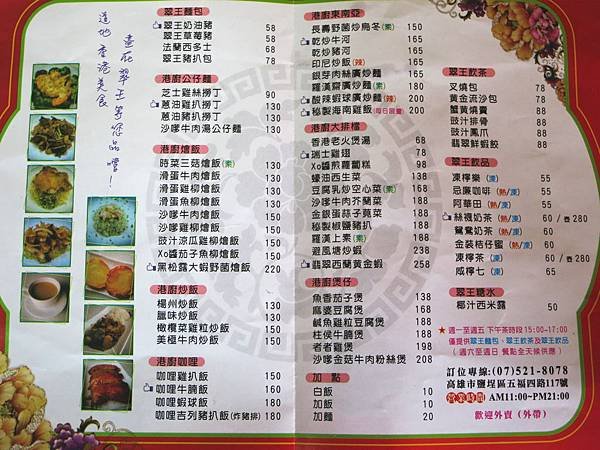 道地香港美食
盡在翠王等您品嚐!
翠王麵包
翠王奶油豬 58
翠王草莓豬 58
法蘭西多士 68
翠王豬扒包 78
港廚公仔麵
芝士雞絲撈丁 90
蔥油雞扒撈丁 130
蔥油豬扒撈丁 130
沙嗲牛肉湯公仔麵 130
港廚燴飯
時菜三菇燴飯(素) 130
滑蛋牛肉燴飯 130
滑蛋雞柳燴飯 130
滑蛋魚柳燴飯 130
沙嗲牛肉燴飯 150
沙嗲雞柳燴飯 150
豉汁涼瓜雞柳燴飯 150
Xo醬茄子魚柳燴飯 190
黑松露大蝦野菌燴飯 220
港廚炒飯
楊州炒飯 130
臘味炒飯 130
橄欖菜雞粒炒飯 150
美極牛肉炒飯 150
港廚咖哩
咖哩雞扒飯 150
咖哩牛腩飯 160
咖哩蝦球飯 180
咖哩吉列豬扒飯(炸豬排) 180
港廚東南亞
長壽野菌炒烏冬(素) 165
乾炒牛河 150
乾炒豬河 150
印尼炒飯(辣) 150
銀芽肉絲廣炒麵 150
羅漢齋廣炒麵(素) 180
酸辣蝦球廣炒麵(辣) 200
秘製海南雞飯(每日限量) 200
港廚大排檔
香港老火煲湯 68
瑞士雞翅 78
Xo醬煎蘿蔔糕 98
蠔油西生菜 138
豆腐乳炒空心菜(素) 168
沙嗲牛肉芥蘭菜 188
金銀蛋蒜子莧菜 188
秘製椒鹽豬扒 188
羅漢上素(素) 188
避風塘炒蝦 238
翡翠西蘭黃金蝦 258
港廚煲仔
魚香茄子煲 138
麻婆豆腐煲 168
鹹魚雞粒豆腐煲 188
柱侯牛腩煲 188
者者雞煲 198
沙嗲金菇牛肉粉絲煲 208
加點
白飯 10
加飯 10
加麵 20
翠王飲茶
叉燒包 78
黃金流沙包 78
蟹黃燒賣 88
豉汁排骨 88
豉汁鳳爪 88
翡翠鮮蝦餃 88
翠王飲品
凍檸樂(凍) 55
忌廉咖啡(熱/凍) 55
阿華田(熱/凍) 55
絲襪奶茶(熱/凍) 60/壺280
鴛鴦奶茶(熱/凍) 60
金裝桔仔蜜(熱/凍) 60
凍檸茶(凍) 60/壺280
咸檸七(凍) 65
翠王糖水
椰汁西米露 50
★週一至週五 下午茶時段15:00-17:00
僅提供翠王麵包、翠王飲茶及翠王飲品
(週六至週日 餐點全天候供應)
訂位專線:(07)521-8078
高雄市鹽埕區五福四路117號
營業時間 AM11:00~PM21:00
歡迎外賣(外帶)